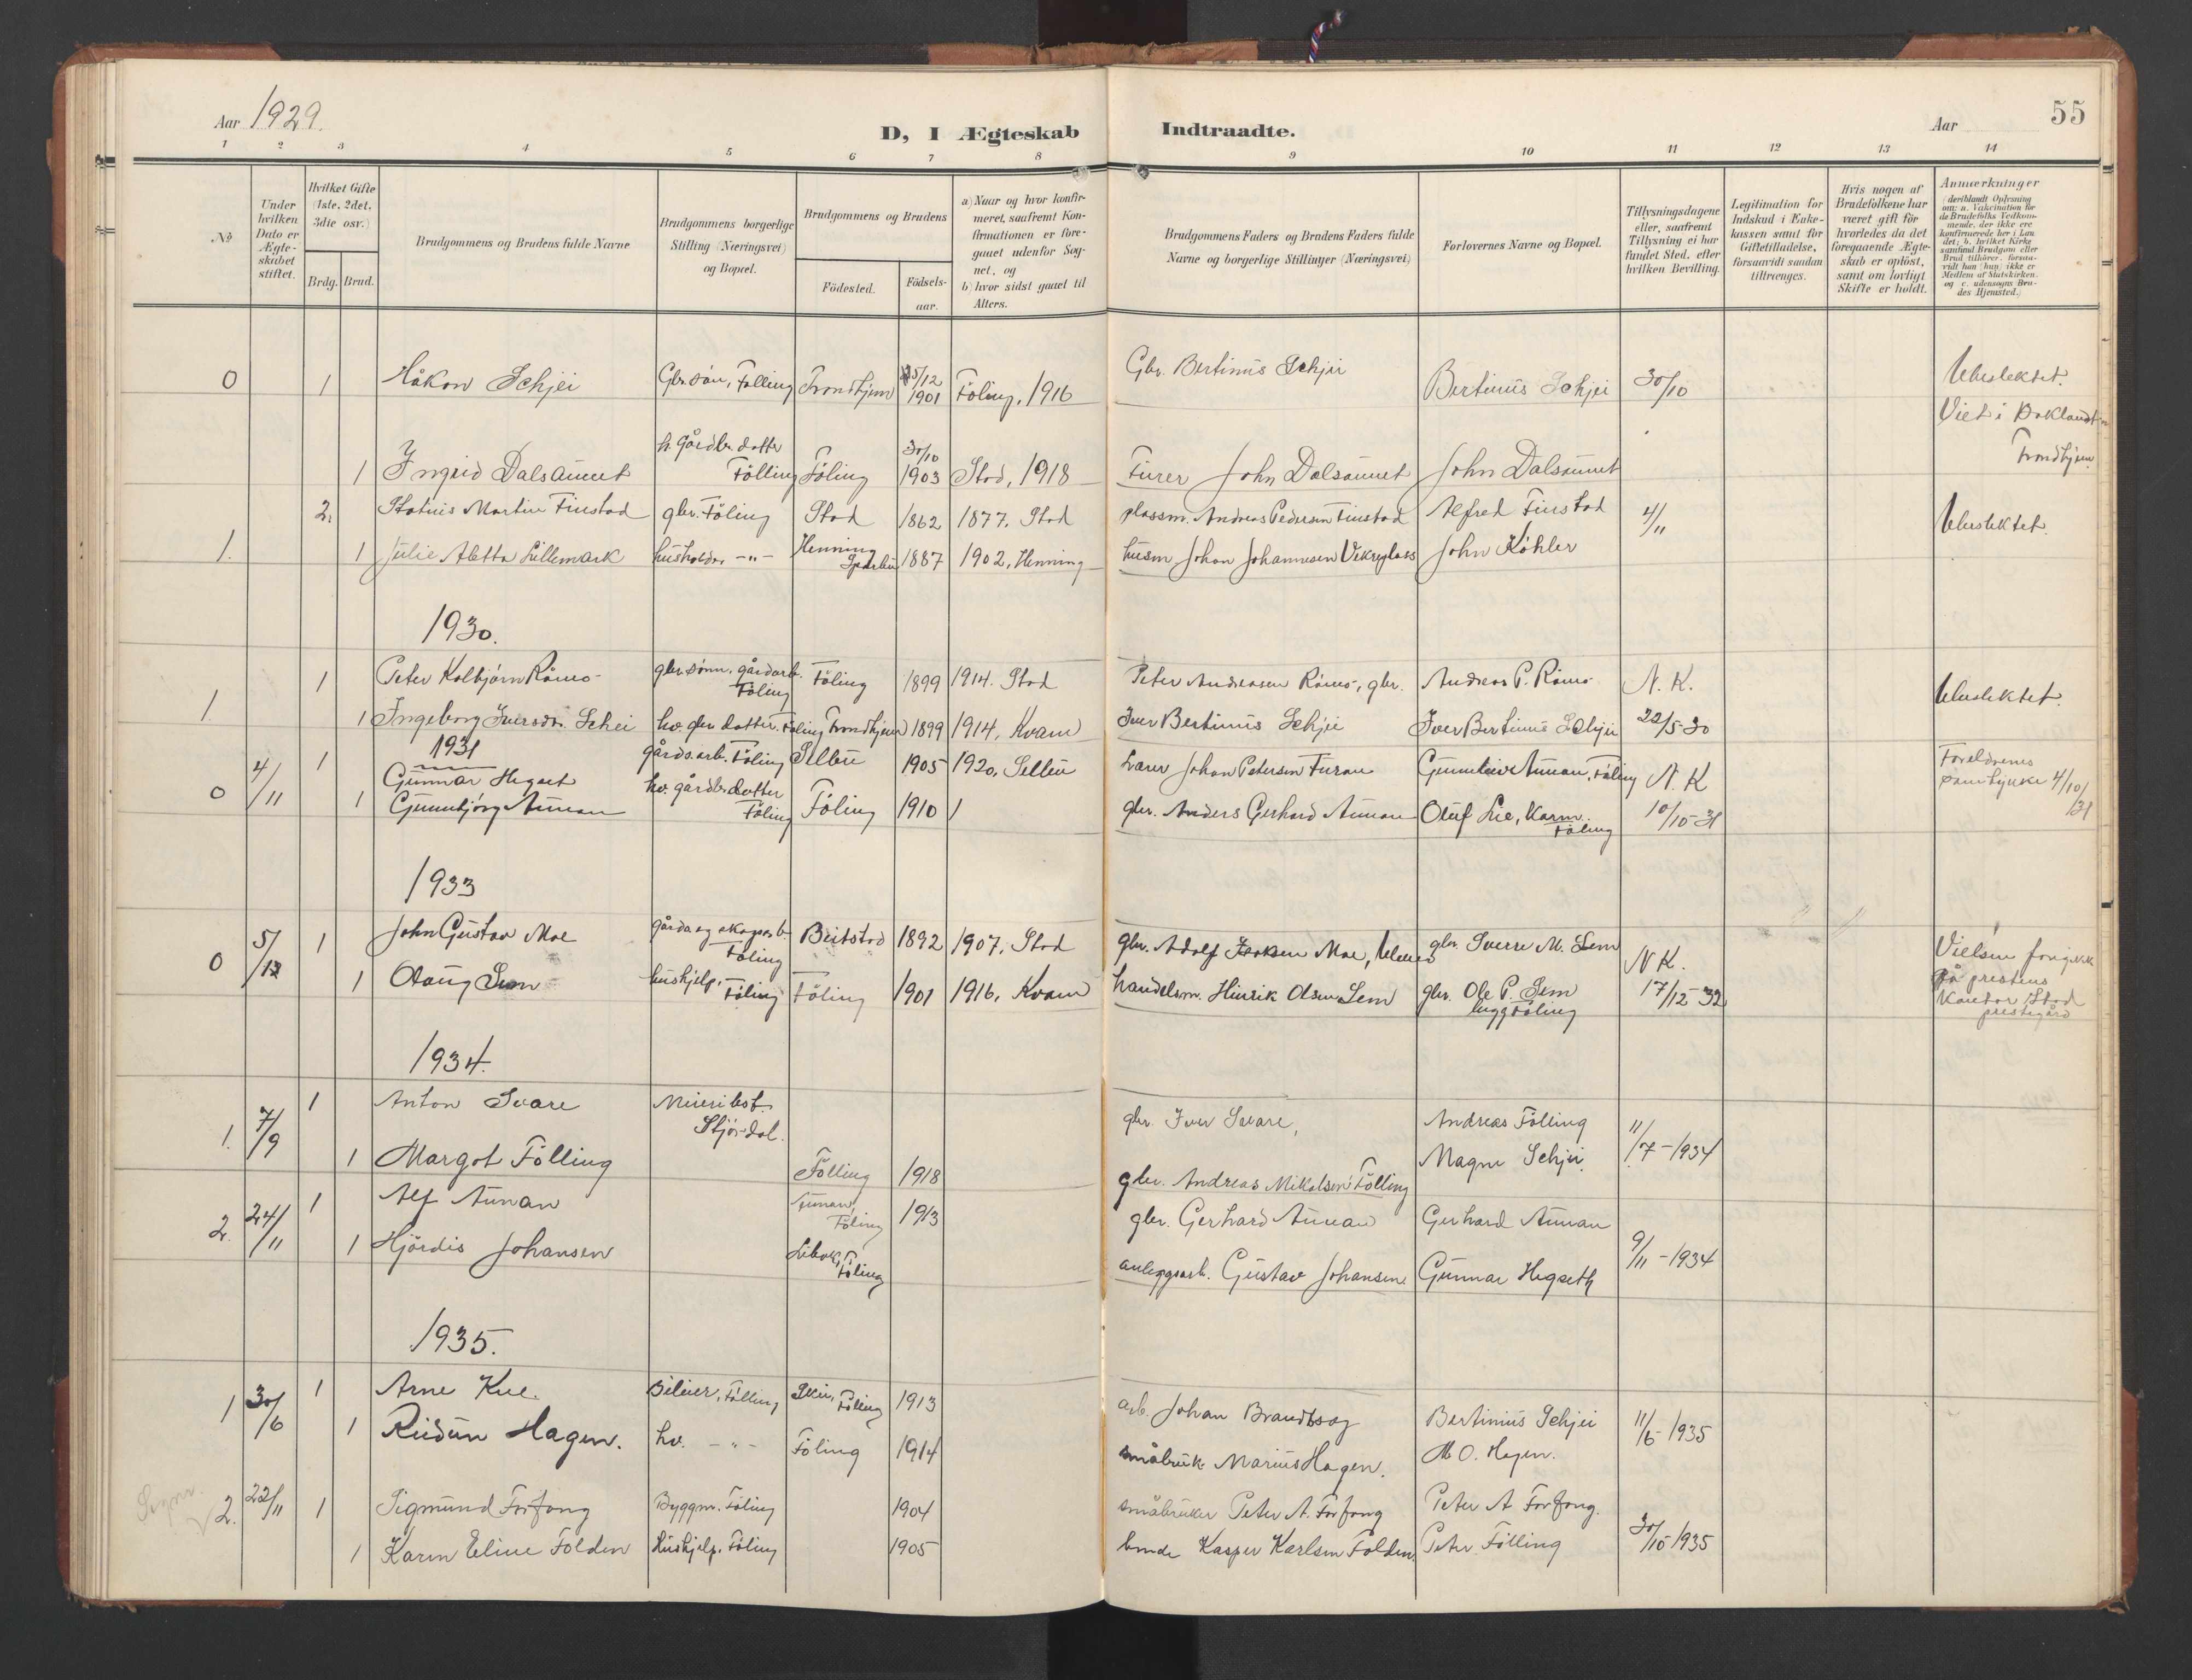 Aar 1929.
D, I Ægteskab Indtraadte.
Aar
55
1 2 3 4 5 6 7 8 9 10 11 12 13 14
№
Under hvilken Dato er Ægteskabet stiftet.
Hvilket Gifte (1ste, 2det, 3die osv.)
Brdg. Brud.
Brudgommens og Brudens fulde Navne
Brudgommens borgerlige Stilling (Næringsvei) og Bopæl.
Brudgommens og Brudens
Födested.
Födsels-aar.
a) Naar og hvor konfirmeret, saafremt Konfirmationen er foregaaet udenfor Sognet, og
b) hvor sidst gaaet til Alters.
Brudgommens Faders og Brudens Faders fulde Navne og borgerlige Stillinger (Næringsvei)
Forlovernes Navne og Bopæl.
Tillysningsdagene eller, saafremt Tillysning ei har fundet Sted, efter hvilken Bevilling.
Legitimation for Indskud i Enkekassen samt for Giftetilladelse, forsaavidt saadan tiltrænges.
Hvis nogen af Brudefolkene har været gift för hvorledes da det foregaaende Ægteskab er oplöst, samt om lovligt Skifte er holdt.
Anmærkninger
(deriblandt Oplysning om: a. Vakcination for de Brudefolks Vedkommende, der ikke ere konfirmerede her i Landet; b. hvilket Kirkesamfund Brudgom eller Brud tilhörer, forsaavidt han (hun) ikke er Medlem af Statskirken. og c. udensogns Brudes Hjemsted.)
0 1 Håkon Schjei Gbr.sön, Følling Trondhjem 25/12 1901 Føling, 1916 Gbr. Bertinus Schjei Bertinus Schjei 30/10 Ubeslektet.
Viet i Baklandt
Trondhjem
1 Ingrid Dalsaunet h. gårdbr. datter Følling Føling 30/10 1903 Stod, 1918 Furer John Dalsaunet John Dalsaunet
2. Martin Finstad gbr. Føling Stod 1862 1877. Stod plassm. Andreas Pedersen Finstad Alfred Finstad 4/11 Ubeslektet.
1. 1 Julie Aletta Lillemark husholder -"- Henning Sparbu 1887 1902, Henning husm Johan Johannesen Vekreplass John Köhler
1930.
1 Peter Kolbjørn Römo gbr.sönn. gårdarb. Føling Føling 1899 1914. Stod Peter Andreasen Römo, gbr. Andreas P. Römo N. K.
1. 1 Ingeborg Iversdr. Schei hv. gbr datter. Føling Trondhjem 1899 1914, Kvam Iver Bertinus Schjei Iver Bertinus Schjei 22/5-30 Ubeslektet.
1931
4/11 1 Gunnar Hegset gårdsarb. Føling Selbu 1905 1920, Selbu Lærer Johan Petersen Furan Aunan, Føling N. K Foreldrenes samtykke 4/10/31
0 1 Gunnbjörg Aunan hv. gårdbr.datter Føling Föling 1910 / gbr. Anders Gerhard Aunan Oluf Lie, Kvam. Føling 10/10-31
1933
5/12 1 John Gustav Moe gårds og skogsarb. Føling Beitstad 1892 1907. Stod gbr. Adolf Isaksen Moe, gbr. Sverre M. Sem N K.
0 1 Olaug Sem hushjelp, Føling Føling 1901 1916, Kvam handelsm. Hinrik Olsen Sem gbr. Ole P. Sem Føling 17/12-32
Vielsen foregikk på prestens kontor Stod prestegård
1934.
1. 7/9 1 Anton Svare Meieribest. Stjørdal. gbr. Iver Svare, Andreas Følling 11/7-1934
1 Margot Følling Følling 1918 gbr. Andreas Mikalsen Følling Magne Schjei
2. 24/11 1 Alf Aunan Aunan, Føling 1913 gbr. Gerhard Aunan Gerhard Aunan 9/11-1934
1 Hjørdis Johansen Føling anleggsarb. Gustav Johansen Gunnar Hegseth
1935.
1 30/6 1 Arne Kne. Bileier, Følling Skei, Føling 1913 arb. Johan Brandtsæg Bertinius Schjei 11/6-1935
1 Reidun Hagen. hv. -"- Føling 1914 småbruk Marius Hagen. M O. Hagen.
2. 22/11 1 Sigmund Forfang Byggm. Föling 1904 småbruker Peter A. Forfang Peter A Forfang. 30/10 1935
1 Karen Eline Folden Hushjelp. Föling 1905 bonde Kasper Karlsen Folden. Peter Følling